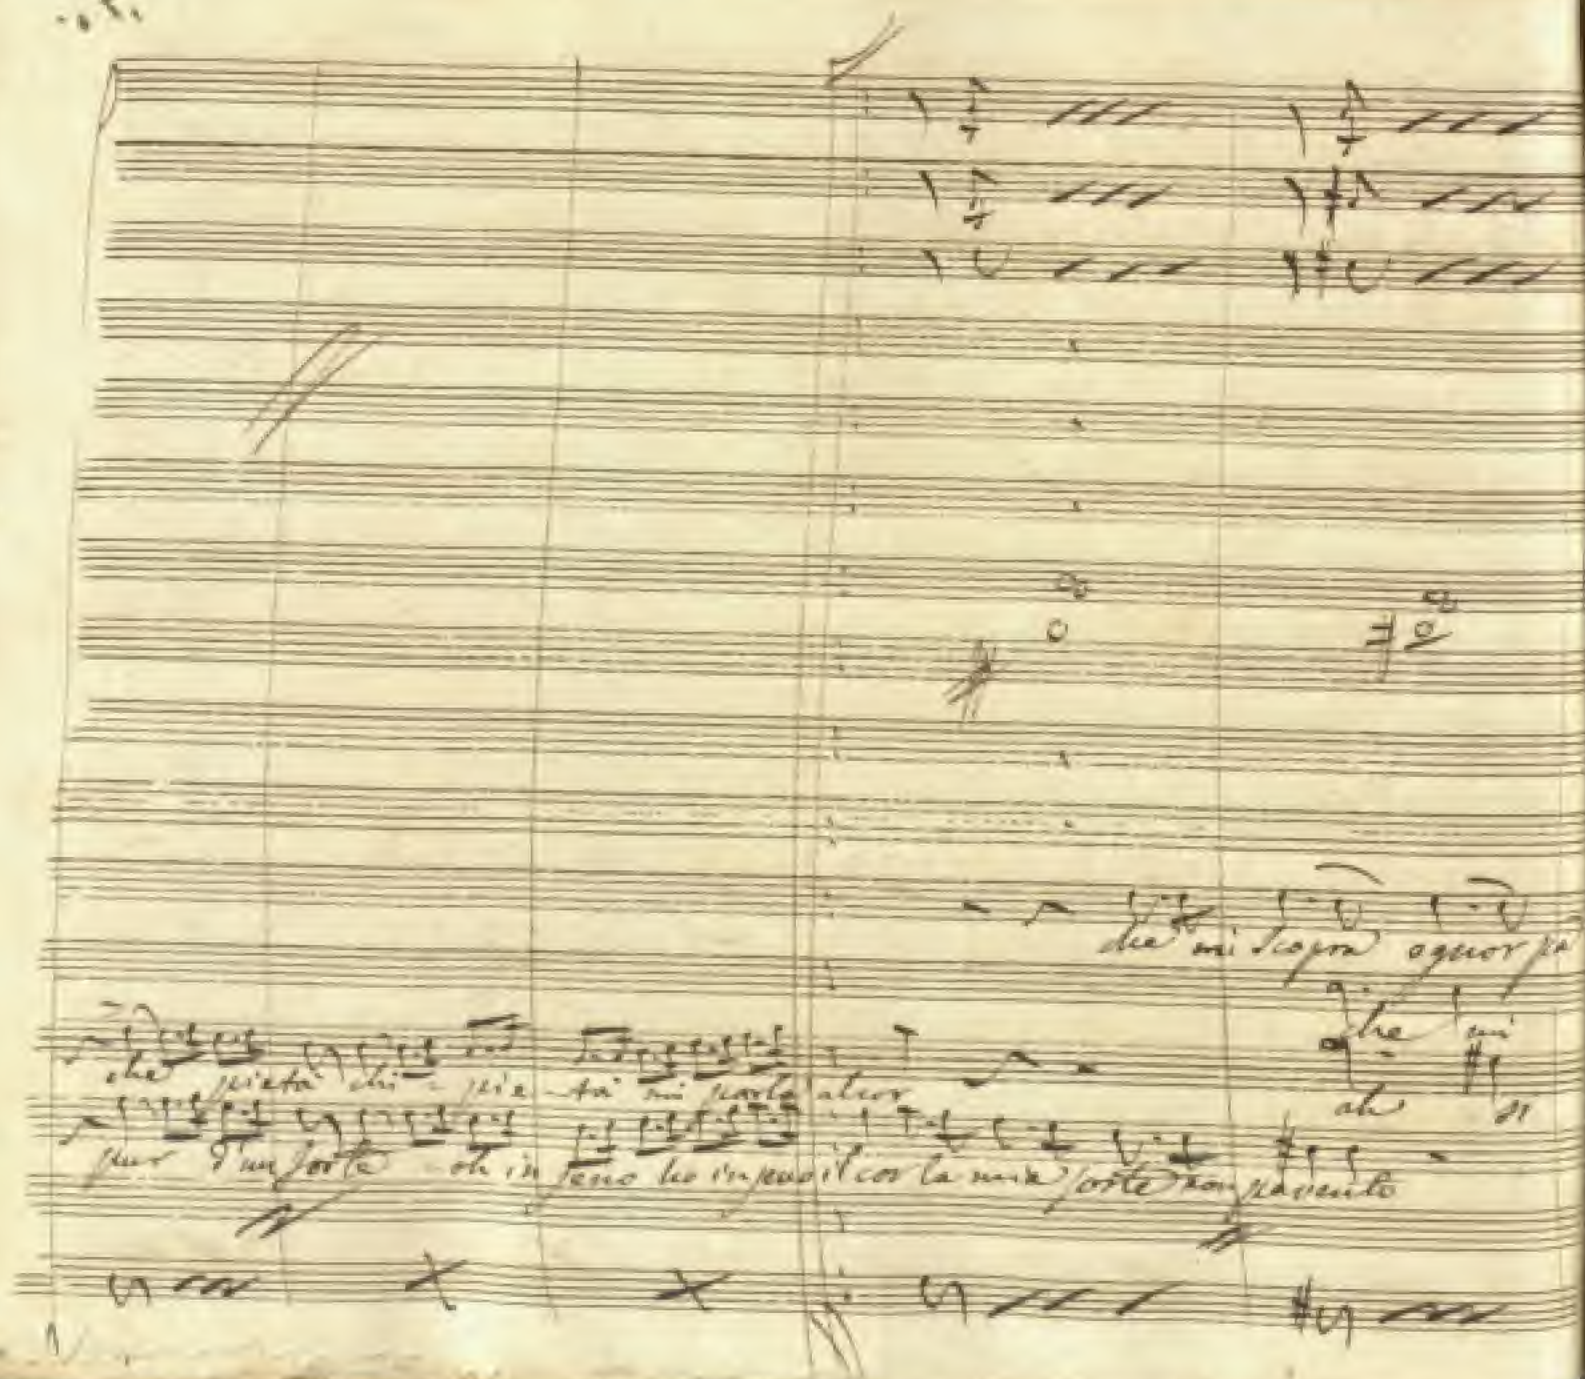 che mi scopra ognor pa
che mi
che pietà chi - pie - tà mi parla al cor
ah si
pur d'un forte - oh in seno ho in seno il cor la mia sorte non pavento